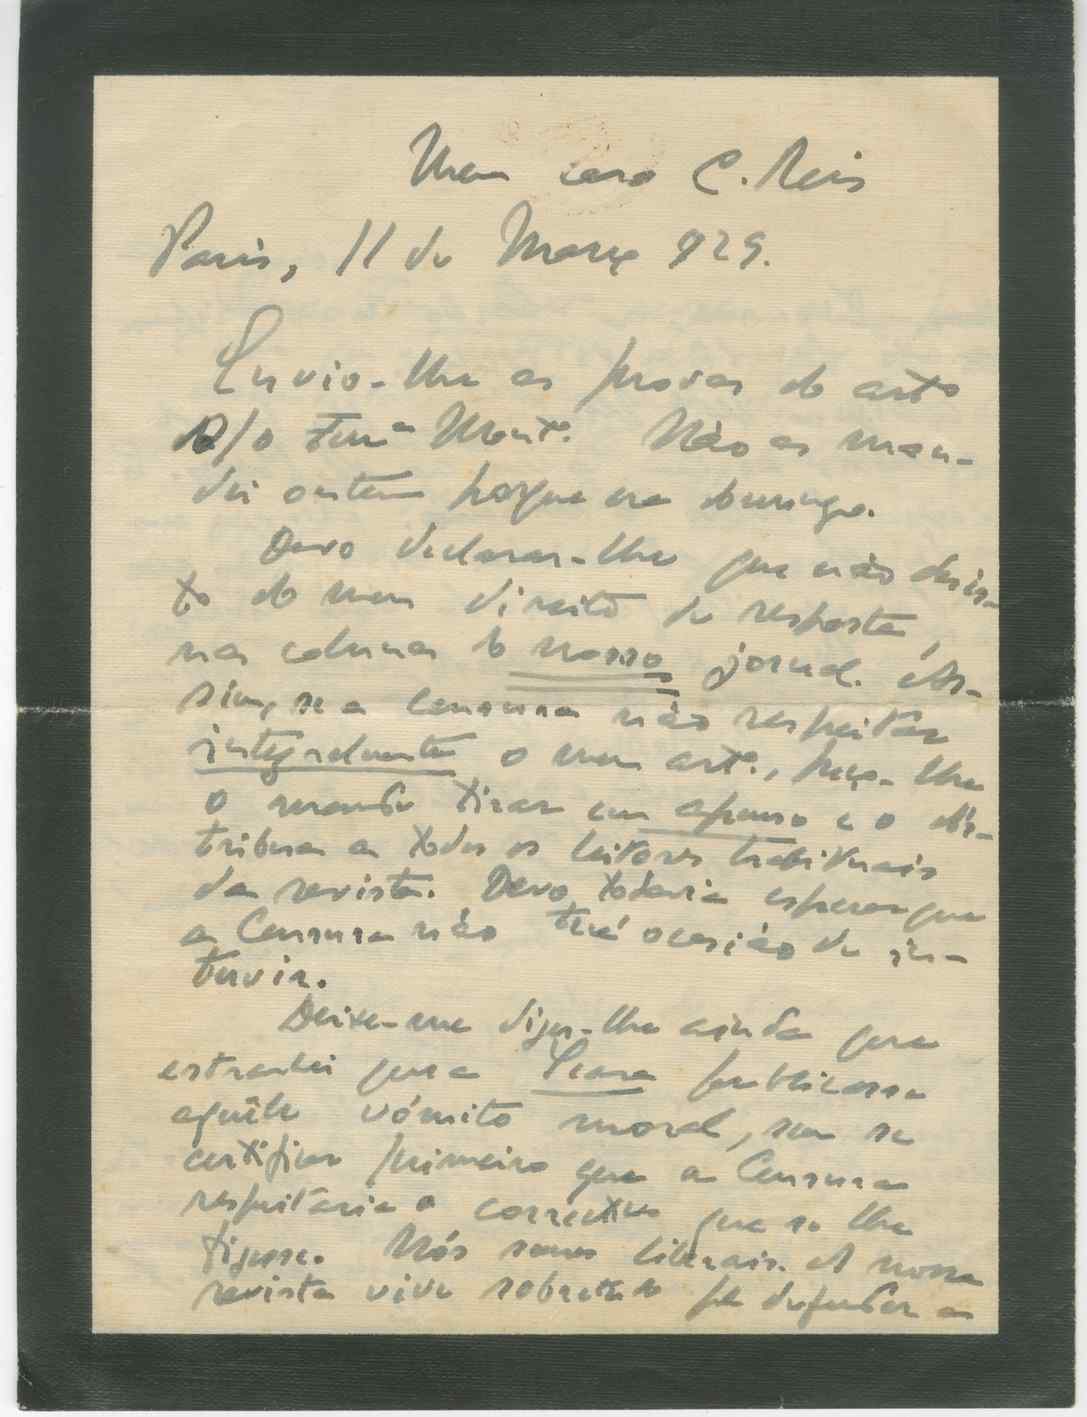 Meu caro C. Reis
Paris, 11 de Março 929.
Envio-lhe as provas do artº
s/o Fern Monte. Não as man-
dei ontem porque era domingo.
Devo declarar-lhe que não desis-
to do meu direito de resposta,
nas colunas do nosso jornal. As-
sim, se a Censura não respeitar
integralmente o meu artº., peço-lhe
o mande tirar em apenso e o dis-
tribua a todos os leitores habituais
da revista. Devo todavia esperar que
a Censura não terá ocasião de in-
tervir.
Deixe-me dizer-lhe ainda que
estranhei que a Seara publicasse
aquêle vómito moral, sem se
certificar primeiro que a Censura
respeitaria o correctivo que se lhe
fizesse. Nós somos liberais. A nossa
revista vive sobretudo pª defender a